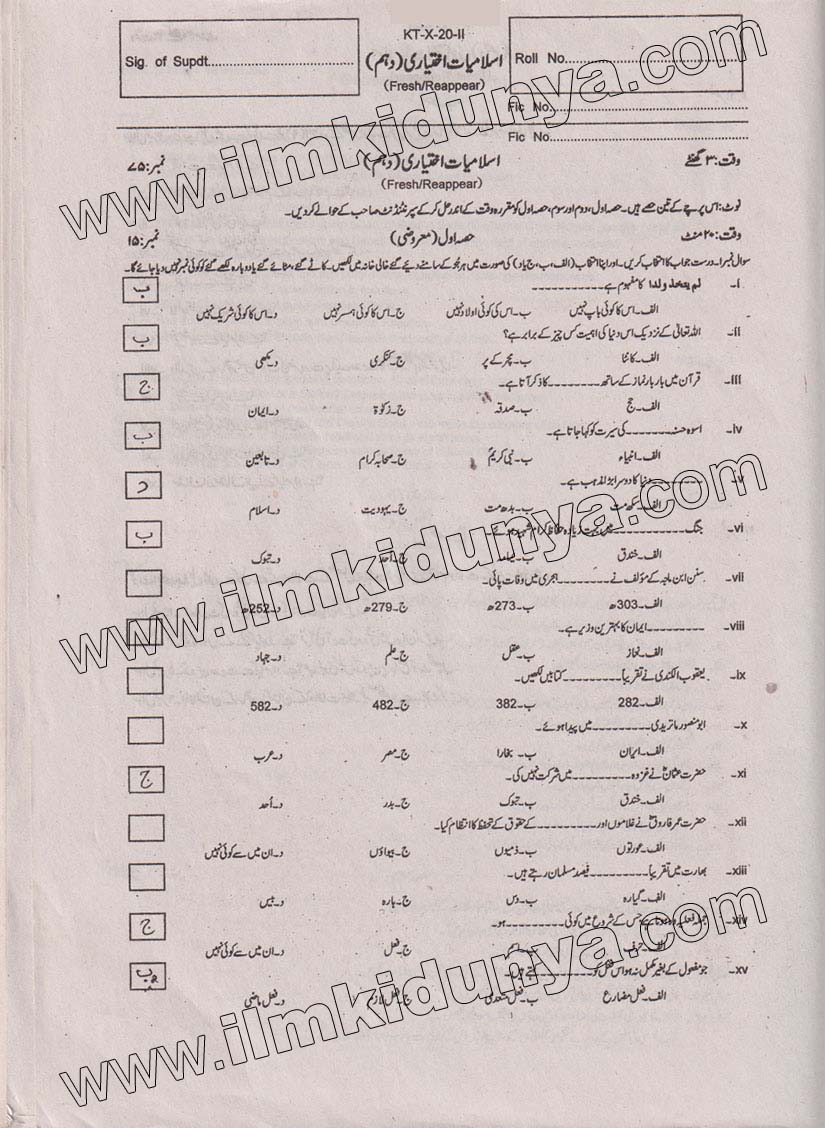 KT-X-20-II
Sig. of Supdt.
اسلامیات اختیاری (دہم)
Roll No.
(Fresh/Reappear)
Fic No.
Fic No.
وقت: ۳ گھنٹے اسلامیات اختیاری (دہم) نمبر: ۷۵
(Fresh/Reappear)
نوٹ: اس پرچے کے تین حصے ہیں۔ حصہ اول، دوم اور سوم، حصہ اول کو مقررہ وقت کے اندر حل کر کے سپرنٹنڈنٹ صاحب کے حوالے کر دیں۔
وقت: ۲۰ منٹ حصہ اول (معروضی) نمبر: ۱۵
سوال نمبر ا۔ درست جواب کا انتخاب کریں۔ اور اپنا انتخاب (الف، ب، ج یا د) کی صورت میں ہر جُز کے سامنے دیئے گئے خالی خانہ میں لکھیں۔ کاٹے گئے، مٹائے گئے یا دوبارہ لکھے گئے کو کوئی نمبر نہیں دیا جائے گا۔
i۔ لم یتخذ ولدا کا مفہوم ہے۔ ب
الف۔ اس کا کوئی باپ نہیں ب۔ اس کی کوئی اولاد نہیں ج۔ اس کا کوئی ہمسر نہیں د۔ اس کا کوئی شریک نہیں
ii۔ اللہ تعالیٰ کے نزدیک اس دنیا کی اہمیت کس چیز کے برابر ہے؟ ب
الف۔ کانٹا ب۔ مچھر کے پر ج۔ کنکری د۔ مکھی
iii۔ قرآن میں بار بار نماز کے ساتھ۔۔۔۔۔۔۔۔۔کا ذکر آتا ہے۔ ج
الف۔ حج ب۔ صدقہ ج۔ زکوٰۃ د۔ ایمان
iv۔ اسوہ حسنہ۔۔۔۔۔۔۔۔کی سیرت کو کہا جاتا ہے۔ ب
الف۔ انبیاء ب۔ نبی کریمؐ ج۔ صحابہ کرام د۔ تابعین
v۔ ۔۔۔۔۔۔۔۔دنیا کا دوسرا بڑا مذہب ہے۔ د
الف۔ سکھ مت ب۔ بدھ مت ج۔ یہودیت د۔ اسلام
vi۔ جنگ۔۔۔۔۔۔۔۔میں بہت زیادہ حفاظ کرام شہید ہوئے۔ ب
الف۔ خندق ب۔ یمامہ ج۔ اُحد د۔ تبوک
vii۔ سنن ابن ماجہ کے مؤلف نے۔۔۔۔۔۔۔۔ہجری میں وفات پائی۔
الف۔ 303ھ ب۔ 273ھ ج۔ 279ھ د۔ 252ھ
viii۔ ۔۔۔۔۔۔۔۔ایمان کا بہترین وزیر ہے۔
الف۔ نماز ب۔ عقل ج۔ علم د۔ جہاد
ix۔ یعقوب الکندی نے تقریباً۔۔۔۔۔۔۔۔کتابیں لکھیں۔
الف۔ 282 ب۔ 382 ج۔ 482 د۔ 582
x۔ ابو منصور ماتریدی۔۔۔۔۔۔۔۔میں پیدا ہوئے۔
الف۔ ایران ب۔ بخارا ج۔ مصر د۔ عرب
xi۔ حضرت عثمانؓ نے غزوہ۔۔۔۔۔۔۔۔میں شرکت نہیں کی۔ ج
الف۔ خندق ب۔ تبوک ج۔ بدر د۔ اُحد
xii۔ حضرت عمر فاروقؓ نے غلاموں اور۔۔۔۔۔۔۔۔کے حقوق کے تحفظ کا انتظام کیا۔
الف۔ عورتوں ب۔ ذمیوں ج۔ بیواؤں د۔ ان میں سے کوئی نہیں
xiii۔ بھارت میں تقریباً۔۔۔۔۔۔۔۔فیصد مسلمان رہتے ہیں۔
الف۔ گیارہ ب۔ دس ج۔ بارہ د۔ بیس
xiv۔ جملہ فعلیہ وہ ہوتا ہے جس کے شروع میں کوئی۔۔۔۔۔۔۔۔ہو۔ ج
الف۔ حرف ب۔ اسم ج۔ فعل د۔ ان میں سے کوئی نہیں
xv۔ جو مفعول کے بغیر مکمل نہ ہو اس فعل کو۔۔۔۔۔۔۔۔کہتے ہیں۔ ب
الف۔ فعل مضارع ب۔ فعل متعدی ج۔ فعل لازم د۔ فعل ماضی
www.ilmkidunya.com
www.ilmkidunya.com
www.ilmkidunya.com